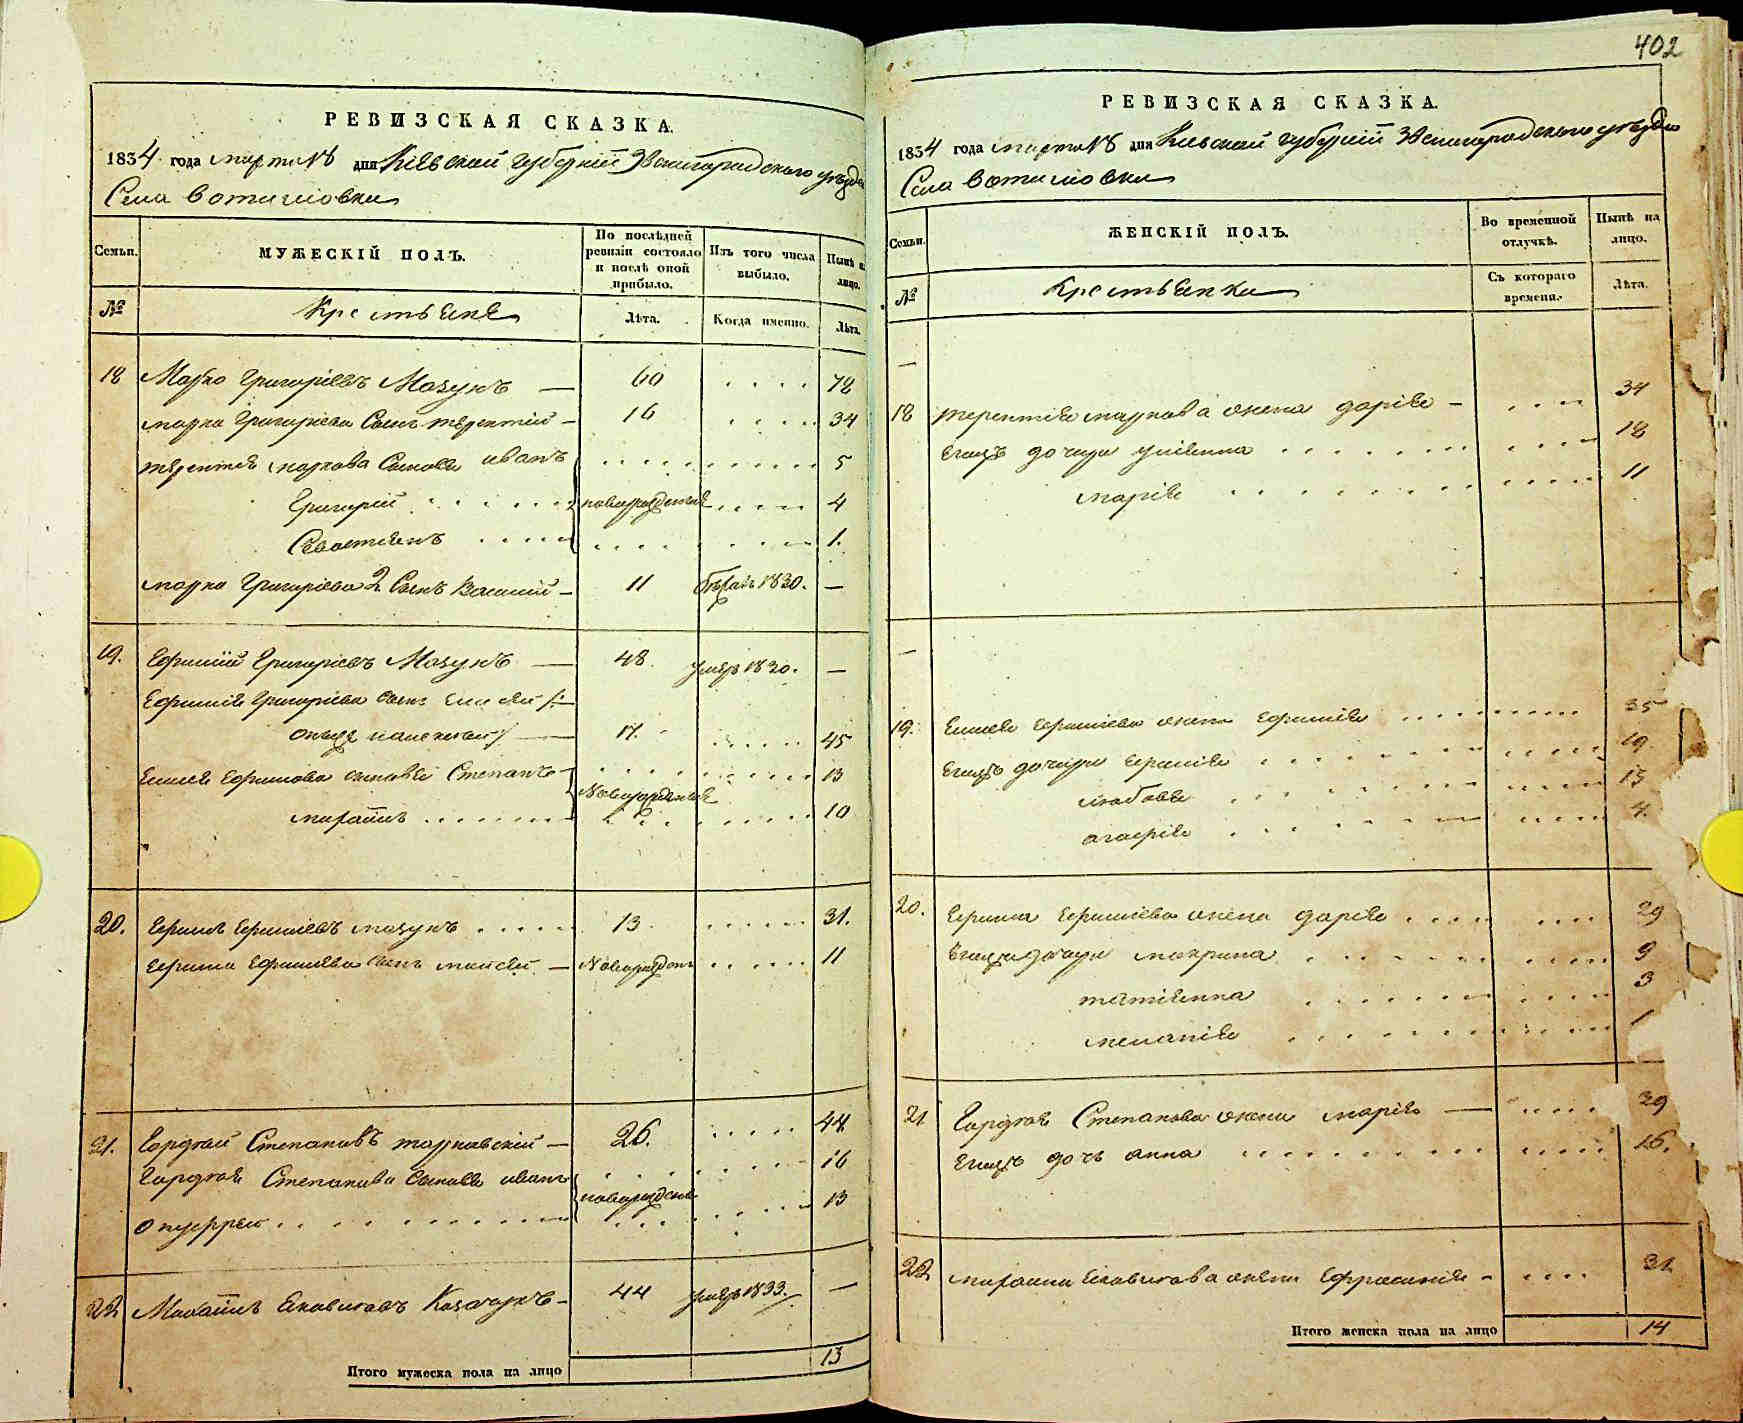 РЕВИЗСКАЯ СКАЗКА.
1834 года марта 18 дня Кіевской губерніи Звенигородского уезда
Села Вотилювки
Семьи.
МУЖЕСКІЙ ПОЛЪ.
По послѣдней ревизіи состояло и послѣ оной прибыло.
Изъ того числа выбыло.
Нынѣ на лицо.
№
Крестьяне
Лѣта.
Когда именно.
Лѣта.
18 Марко Григоріевъ Мазунъ 60 78
Марка Григоріева Сынъ терентій 16 34
терентія маркова Сыновя иванъ 5
Григорій новорожденные 4
Севастіянъ 1.
марка Григоріева 2 Сынъ Василій 11 1830. —
19. Ефимій Григоріевъ Мазунъ 48. умеръ 1830. —
Ефимія Григоріева Сынъ Елисей
45
Елисея Ефимова сыновя Степанъ 13
Новорожденные
михаилъ 10
20. Ефимъ Ефиміевъ мазунъ 13. 31.
Ефима Ефиміева Сынъ моисей Новорожденъ 11
21. Гордѣй Степановъ тарновскій 26. 44
Гордѣя Степанова Сыновя иванъ 16
новорожден
Онуфрей 13
22 Михаилъ Яковлевъ Казачукъ 44 умеръ 1833. —
Итого мужеска пола на лицо 13
402
РЕВИЗСКАЯ СКАЗКА.
1834 года марта 18 дня Кіевской губерніи Звенигородского уезда
Села Вотилювки
Семьи.
ЖЕНСКІЙ ПОЛЪ.
Во временной отлучкѣ.
Нынѣ на лицо.
№
Крестьянки
Съ котораго времени.
Лѣта.
18 терентія маркова жена дарія 34
Егожъ дочери уліянна 18
марія 11
19. Елисея Ефиміева жена Ефимія 35
Егожъ дочери 19
любовя 15
агафія 4.
20. Ефима Ефиміева жена дарія 29
Егожъ дочери макрина 9
татіянна 3
меланія 1
21 Гордѣя Степанова жена марія 39
Егожъ дочъ анна 16.
22 михаила Яковлева жена Ефросинія 31
Итого женска пола на лицо 14